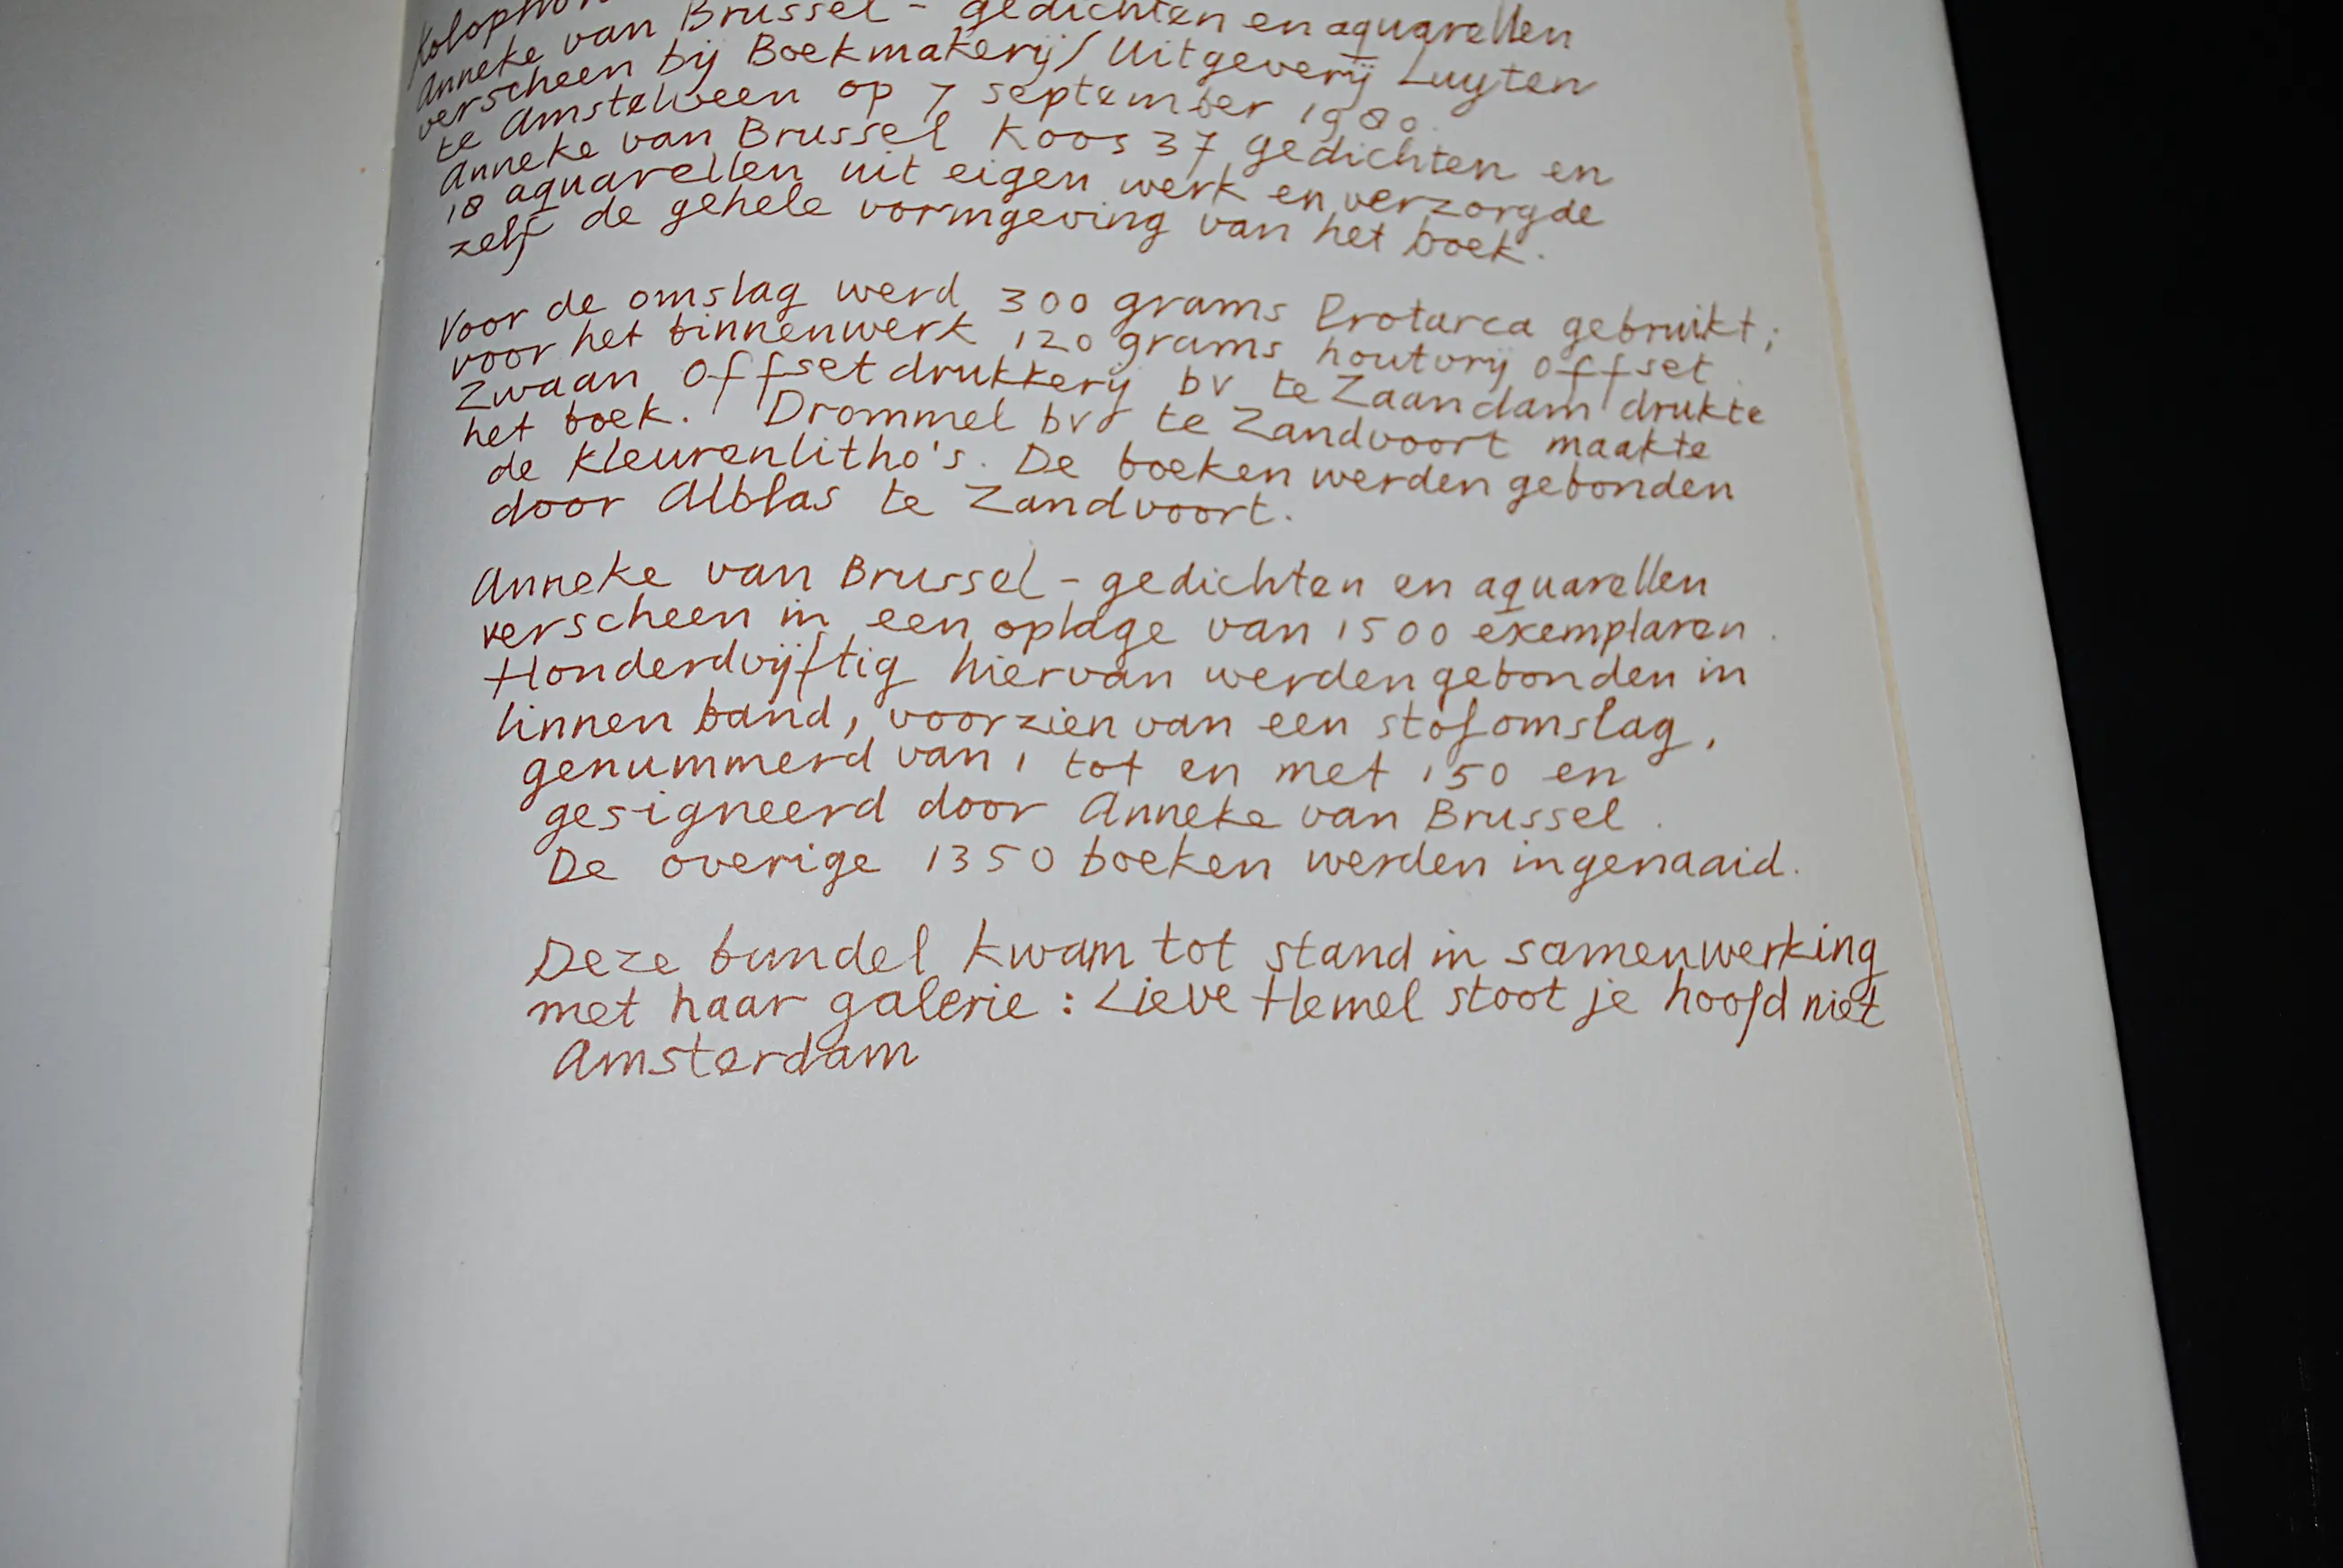 Kolophon
Anneke van Brussel - gedichten en aquarellen
verscheen bij Boekmakerij/Uitgeverij Luyten
te Amstelveen op 7 september 1980.
Anneke van Brussel koos 37 gedichten en
18 aquarellen uit eigen werk en verzorgde
zelf de gehele vormgeving van het boek.
Voor de omslag werd 300 grams Protarca gebruikt;
voor het binnenwerk 120 grams houtvrij offset.
Zwaan Offsetdrukkerij bv te Zaandam drukte
het boek. Drommel bv te Zandvoort maakte
de kleurenlitho's. De boeken werden gebonden
door Alblas te Zandvoort.
Anneke van Brussel - gedichten en aquarellen
verscheen in een oplage van 1500 exemplaren.
Honderdvijftig hiervan werden gebonden in
linnen band, voorzien van een stofomslag,
genummerd van 1 tot en met 150 en
gesigneerd door Anneke van Brussel.
De overige 1350 boeken werden ingenaaid.
Deze bundel kwam tot stand in samenwerking
met haar galerie: Lieve Hemel stoot je hoofd niet
Amsterdam